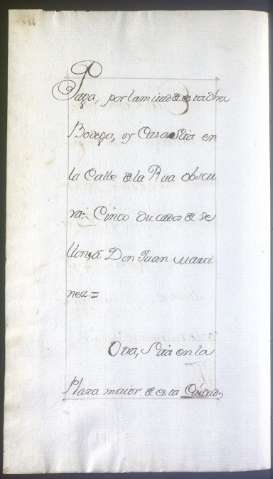 Paga, por la mitad de otra dha
Bodega, y Casa Sita en
la Calle de la Rua obscu
ra; Cinco Ducados de
Don Juan Marti
nez=
Otra, Sita en la
Plaza maior de esta Ciudad,